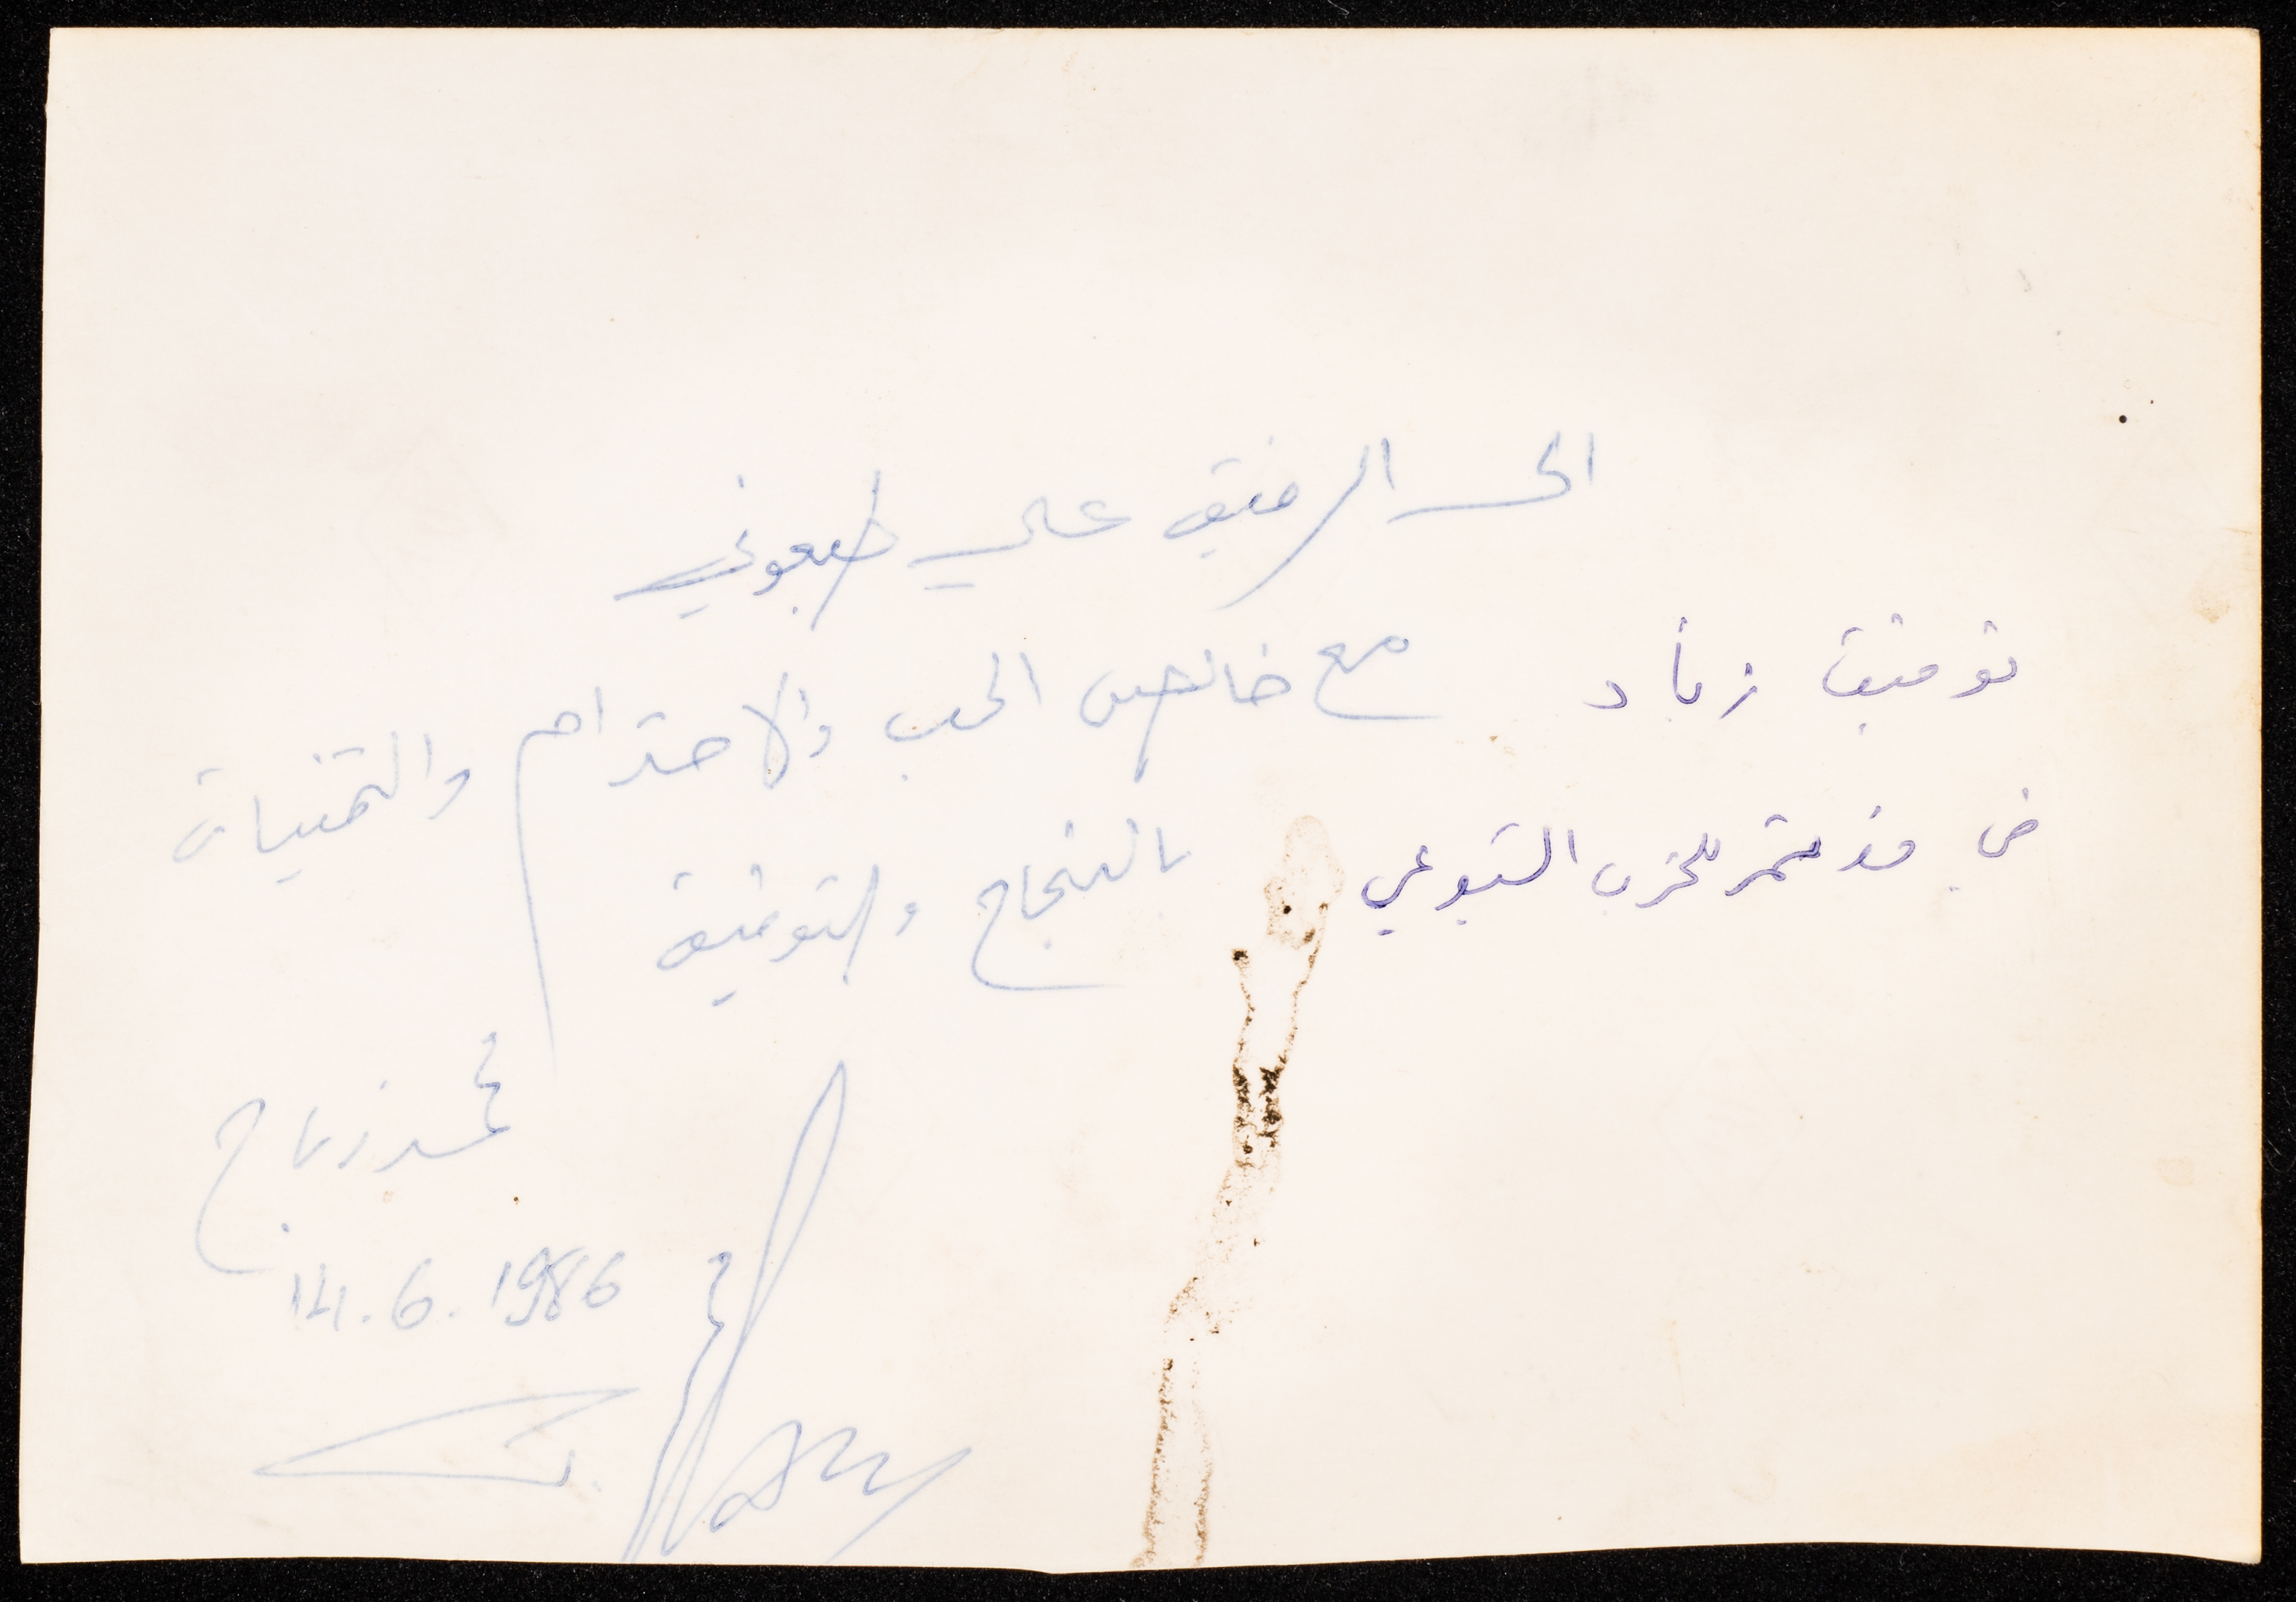 الى الرفيق علي طبعوني
مع خالص الحب والاحترام والتمنيات
بالنجاح والتوفيق
محمد زباج
14.6.1986
توفيق زياد
في مؤتمر للحزب الشيوعي